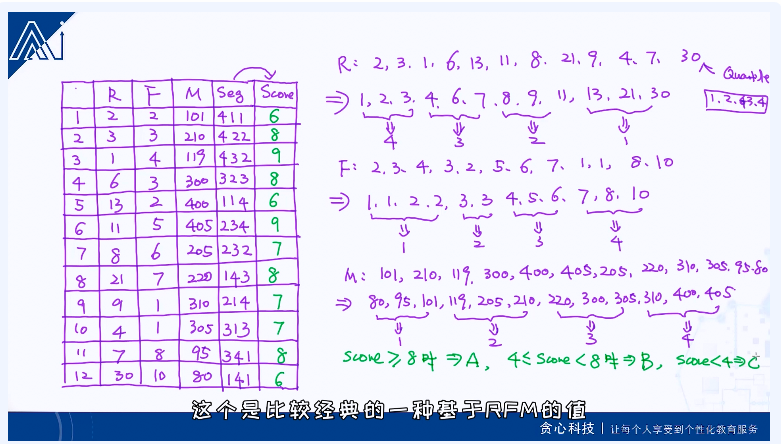 Ai
R F M Seg Score
1 2 2 101 411 6
2 3 3 210 422 8
3 1 4 119 432 9
4 6 3 300 323 8
5 13 2 400 114 6
6 11 5 405 234 9
7 8 6 205 232 7
8 21 7 220 143 8
9 9 1 310 214 7
10 4 1 305 313 7
11 7 8 95 341 8
12 30 10 80 141 6
R: 2, 3. 1, 6, 13, 11, 8. 21, 9, 4. 7, 30
Quantile
⇒ 1, 2, 3, 4, 6, 7, 8, 9, 11, 13, 21, 30
4 3 2 1
F: 2, 3, 4, 3, 2, 5, 6, 7, 1, 1, 8, 10
⇒ 1, 1, 2, 2, 3, 3 4, 5, 6, 7, 8, 10
1 2 3 4
M: 101, 210, 119, 300, 400, 405, 205, 220, 310, 305, 95. 80
⇒ 80, 95, 101, 119, 205, 210, 220, 300, 305, 310, 400, 405
1 2 3 4
Score ≥ 8时 ⇒ A, 4 ≤ Score < 8时 ⇒ B, Score < 4 ⇒ C
这个是比较经典的一种基于RFM的值
贪心科技 | 让每个人享受到个性化教育服务